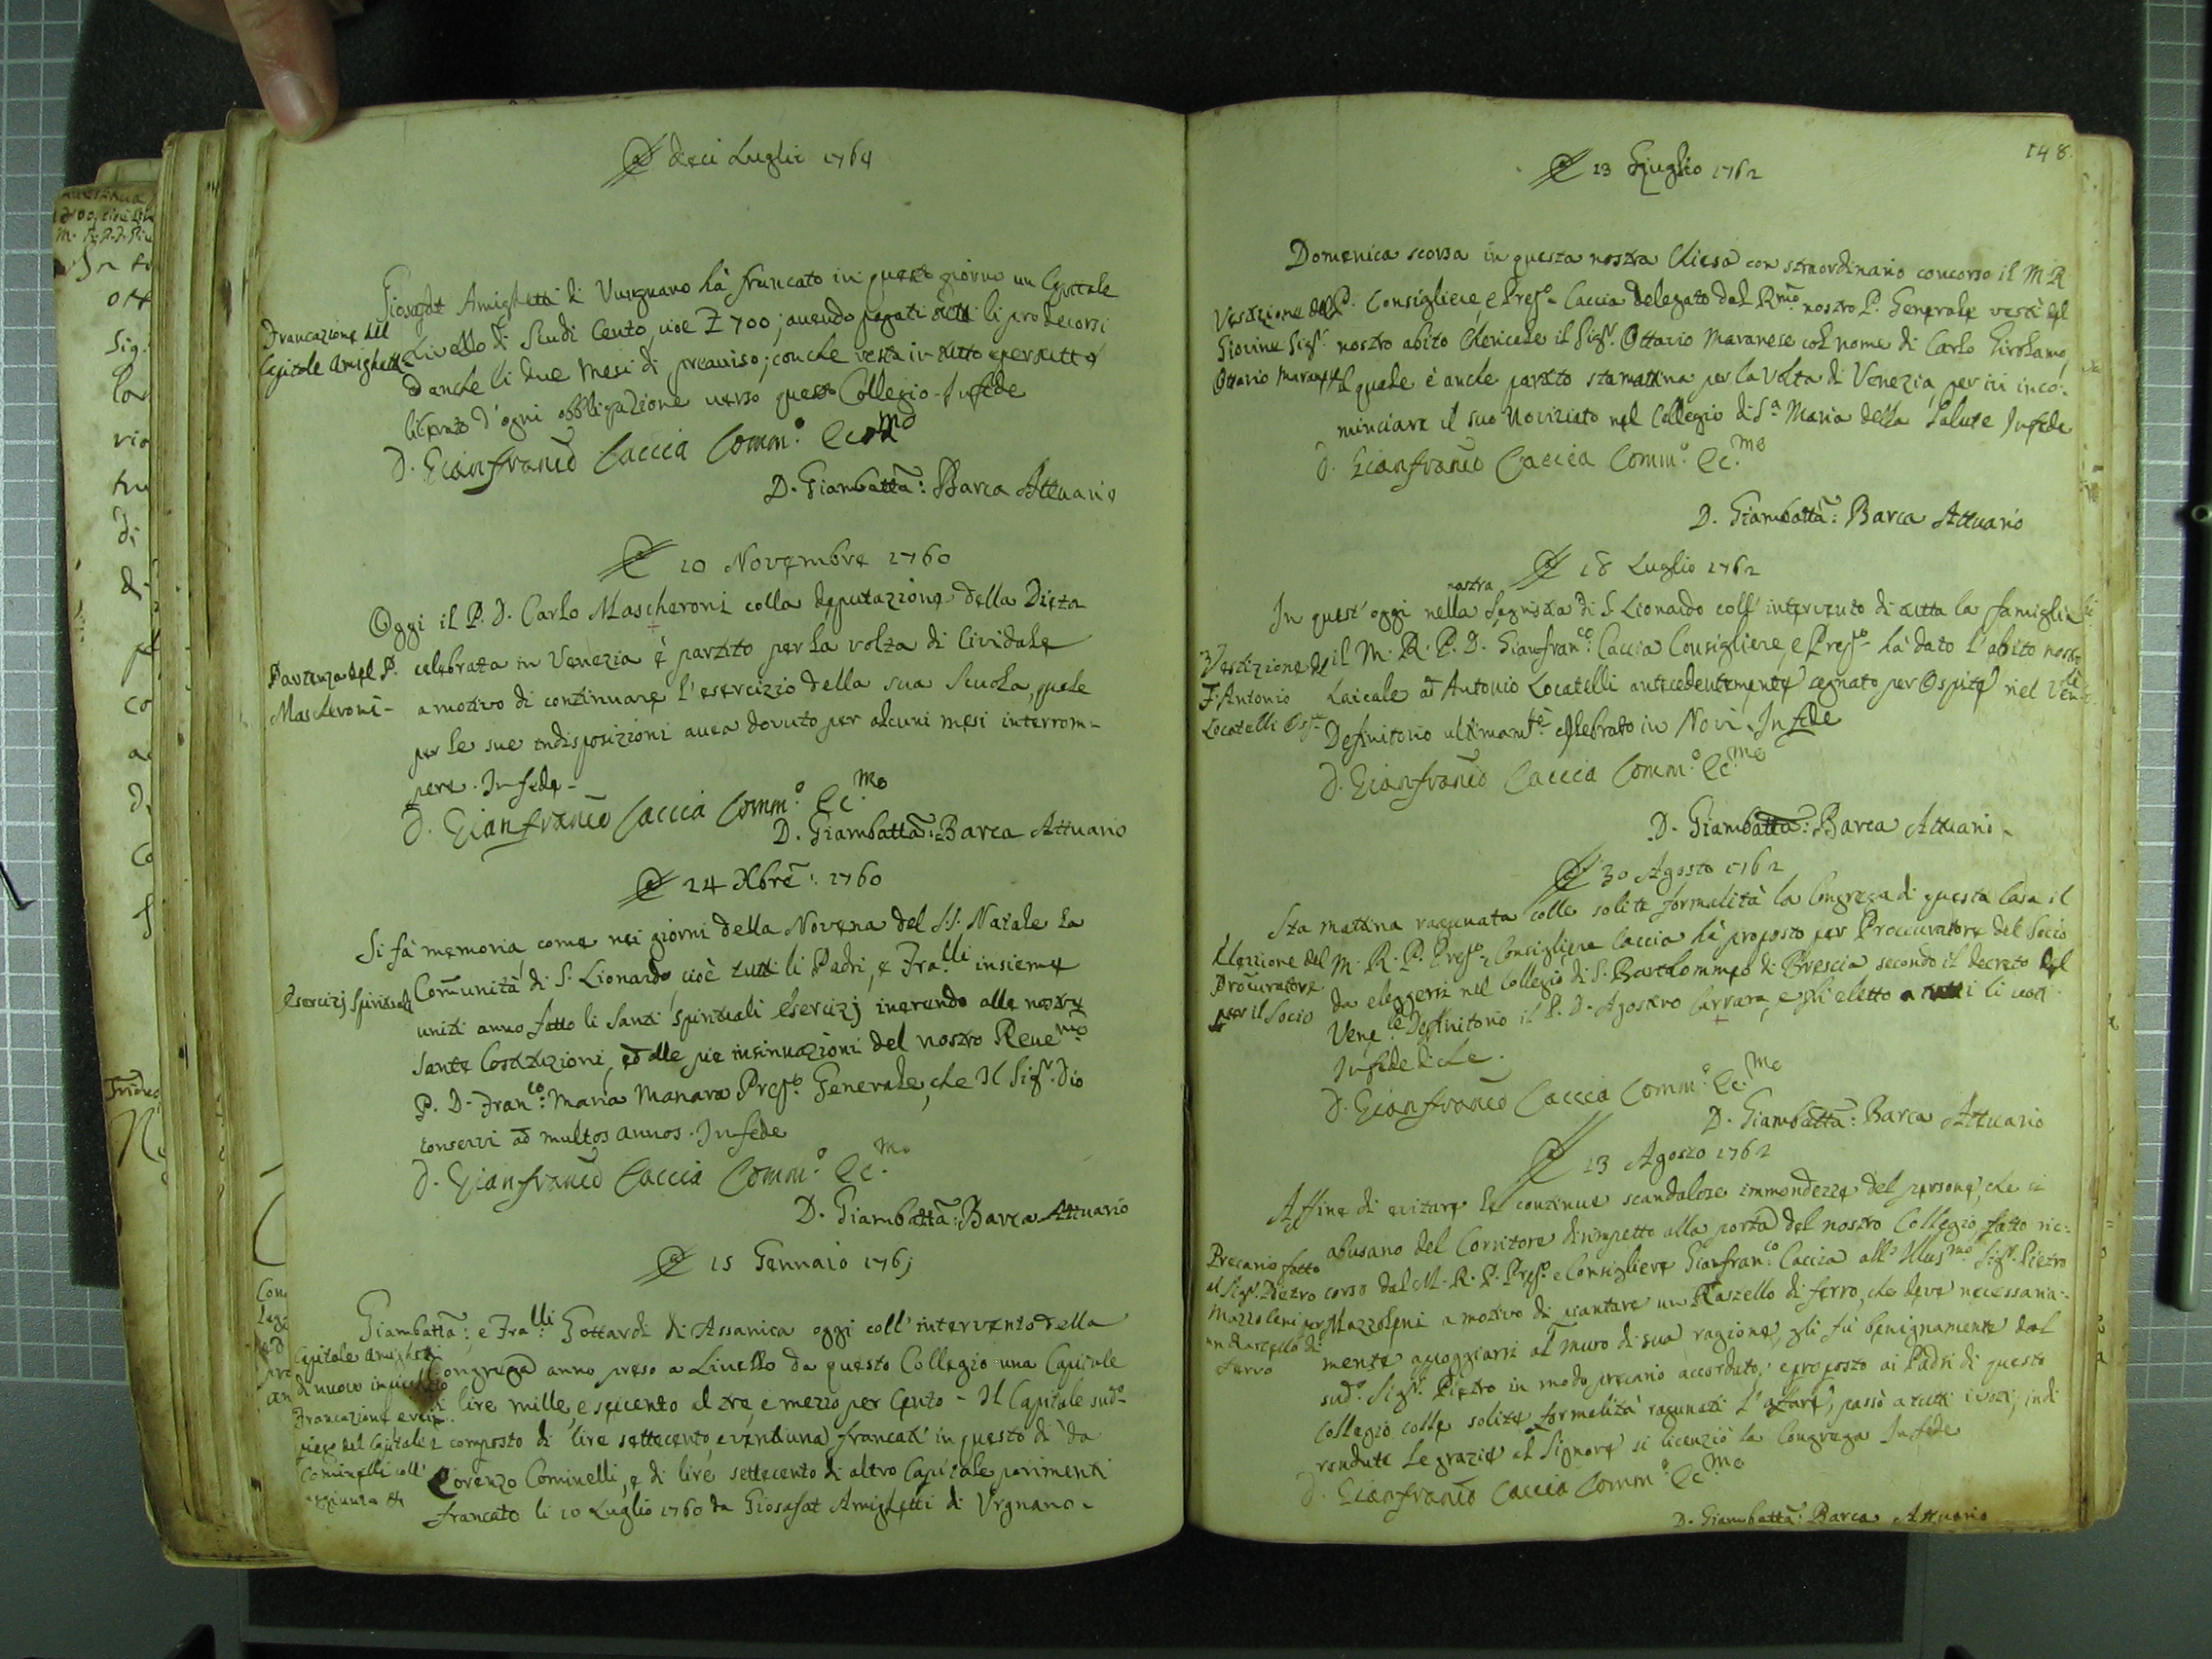 Adi dieci Luglio 1760
Giosafat Amighetti di Vurgnano hà francato in questo giorno un Capitale
Francazione del
Capitale Amighetti
Livello di Scudi Cento, cioe Z 700; avendo pagati tutti li prodecorsi
d anche li due mesi di preaviso; con che resta in tutto e per tutto
liberato d'ogni obbligazione verso questo Collegio. In fede
D. Gianfranco Caccia Comm.º Ec.mo
D. Giambatta: Barca Attuario
Adi 10 Novembre 1760
Oggi il P. D. Carlo Mascheroni colla deputazione della Dieta
Partenza del P.
Mascheroni-
celebrata in Venezia è partito per la volta di Cividale
a motivo di continuare l'esercizio della sua Scuola, quale
per le sue indisposizioni avea dovuto per alcuni mesi interrom-
pere. In fede-
D. Gianfranco Caccia Comm.º Ec.mo
D. Giambatta: Barca Attuario
Adi 24 Xbre: 1760
Si fà memoria, come nei giorni della Novena del SS. Natale la
Esercizj Spirituali
Comunità di S. Lionardo cioè tutti li Padri, e Fra.lli insieme
uniti anno fatto li Santi Spirituali Esercizj inerendo alle nostre
Sante Costituzioni, ed alle pie insinuazioni del nostro Reve.mo
P. D. Fran.co: Maria Manara Prep.to Generale, che Il Sig.r Dio
conservi ad multos annos. In fede
D. Gianfranco Caccia Comm.º Ec.mo
D. Giambatta: Barca Attuario
Adi 15 Gennaio 1761
Giambatta: e Fra.lli Gottardi di Assanica oggi coll' intervento della
Capitale Amighetti
di nuovo investito
Francazione e rein-
piego del Capitale
Cominelli coll'
aggiunta &
Congrega anno preso a Livello da questo Collegio una Capitale
di lire mille, e seicento al tre e mezzo per Cento - Il Capitale sud.º
è composto di lire settecento, e ventiuna francati in questo dì da
Lorenzo Cominelli, e di lire settecento di altro Capitale parimenti
francato li 10 Luglio 1760 da Giosafat Amighetti di Urgnano-
148.
Adi 13 Giuglio 1762
Domenica scorsa in questa nostra Chiesa con straordinario concorso il M. R.
Vestizione del
Giovine Sig.r
Ottavio Maranese
P. Consigliere, e Prep.to Caccia delegato dal R.mo nostro P. Generale vestì del
nostro abito Chericale il Sig.r Ottavio Maranese col nome di Carlo Girolamo,
il quale è anche partito stamattina per la volta di Venezia, per ivi inco-
minciare il suo Noviziato nel Collegio di S.a Maria della Salute In fede
D. Gianfranco Caccia Comm.º Ec.mo
D. Giambatta: Barca Attuario
Adi 18 Luglio 1762
In quest' oggi nella nostra Sagristia di S. Lionardo coll' intervento di tutta la famiglia
Vestizione del
F. Antonio
Locatelli Osp.te
il M. R. P. D. Gianfran.co Caccia Consigliere, e Prep.to hà dato l'abito nostro
Laicale ad Antonio Locatelli antecedentemente segnato per Ospite nel Ven.le
Definitorio ultimam.te celebrato in Novi. In fede
D. Gianfranco Caccia Comm.º Ec.mo
D. Giambatta: Barca Attuario-
Adi 30 Agosto 1762
Sta mattina ragunata colle solite formalità la Congrega di questa Casa il
Elezzione del
Procuratore
per il Socio
M. R. P. Prep.to e Consigliere Caccia hà proposto per Procuratore del Socio
da eleggersi nel Collegio di S. Bartolommeo di Brescia secondo il decreto del
Vene.le Definitorio il P. D. Agostino Carrara, e fù eletto a tutti li voti.
In fede di che.
D. Gianfranco Caccia Comm.º Ec.mo
D. Giambatta: Barca Attuario
Adi 13 Agosto 1762
Affine di evitare le continue scandalose immondezze del persone, che si
Precario fatto
al Sig.r Pietro
Mazzoleni per
un Rastello di
ferro
abusano del Corritore dirimpetto alla porta del nostro Collegio, fatto ric-
corso dal M. R. P. Prep.to e Consigliere Gianfran.co Caccia all' Illus.mo Sig.r Pietro
Mazzoleni a motivo di piantare un Rastello di ferro, che deve necessaria-
mente appoggiarsi al muro di sua ragione, gli fù benignamente dal
sud.º Sig.r Pietro in modo precario accordato; e proposto ai Padri di questo
Collegio colle solite formalità ragunati l'affare, passò a tutti i voti; indi
rendute le grazie al Signore si licenziò la Congrega In fede
D. Gianfranco Caccia Comm.º Ec.mo
D. Giambatta: Barca Attuario